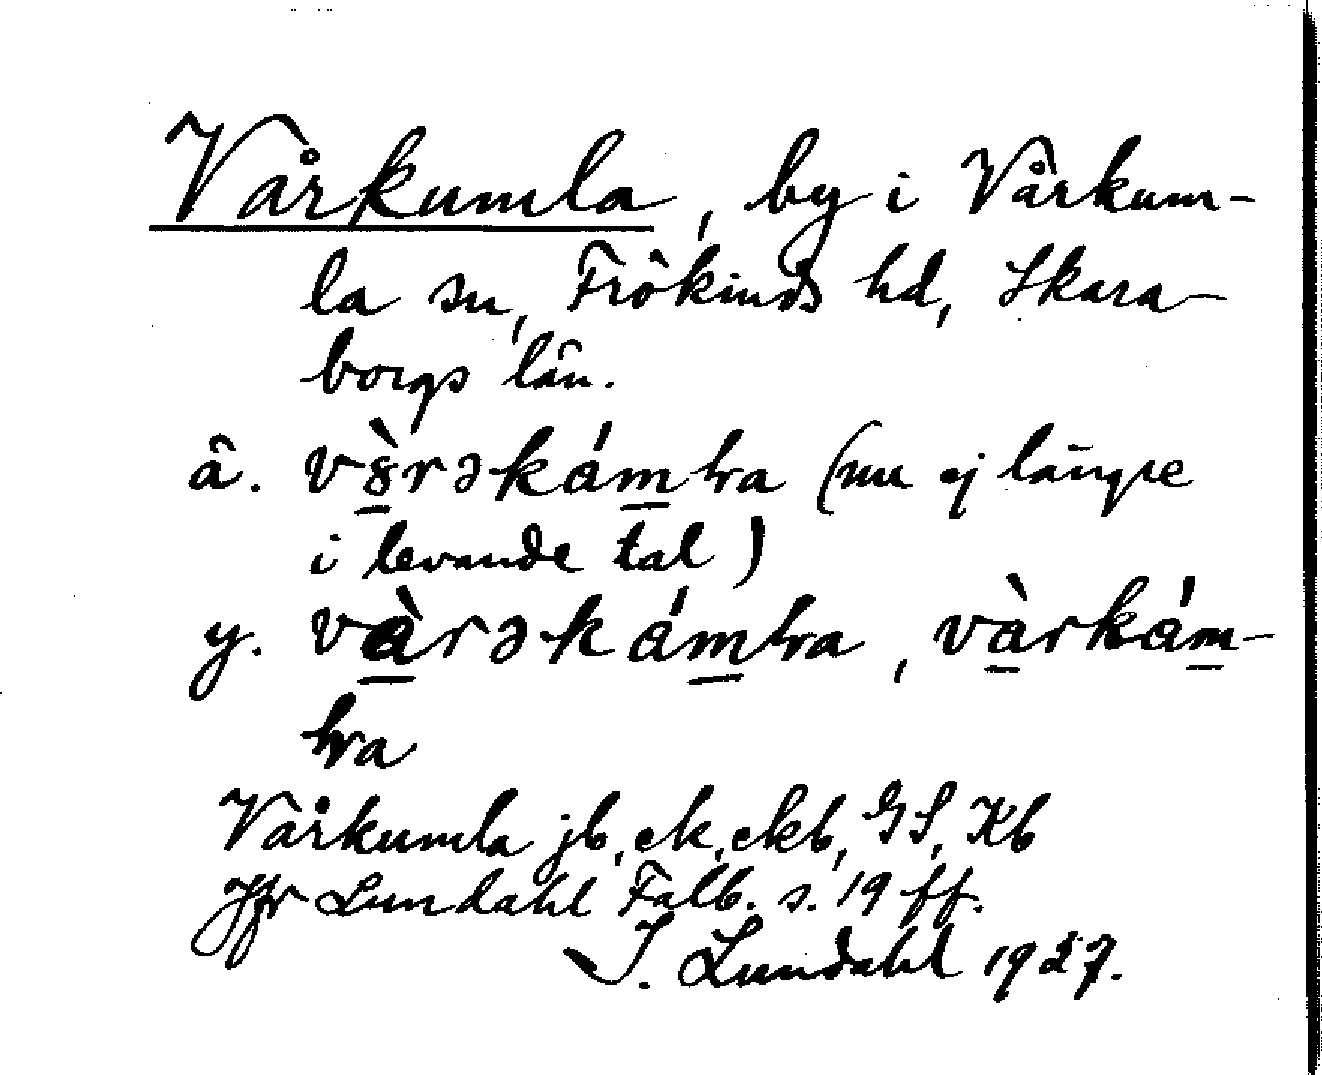 Vårkumla, by i Vårkum-
la sn, Frökinds hd, Skara-
borgs län.
ä. v8̱̀rəkám̱bra (nu ej längre
i levande tal)
y. và̱rəkám̱bra, và̱rkám̱-
bra
Vårkumla jb, ek, ekb, GS, Kb
Jfr Lundahl Falb. s. 19 ff.
I. Lundahl 1927.